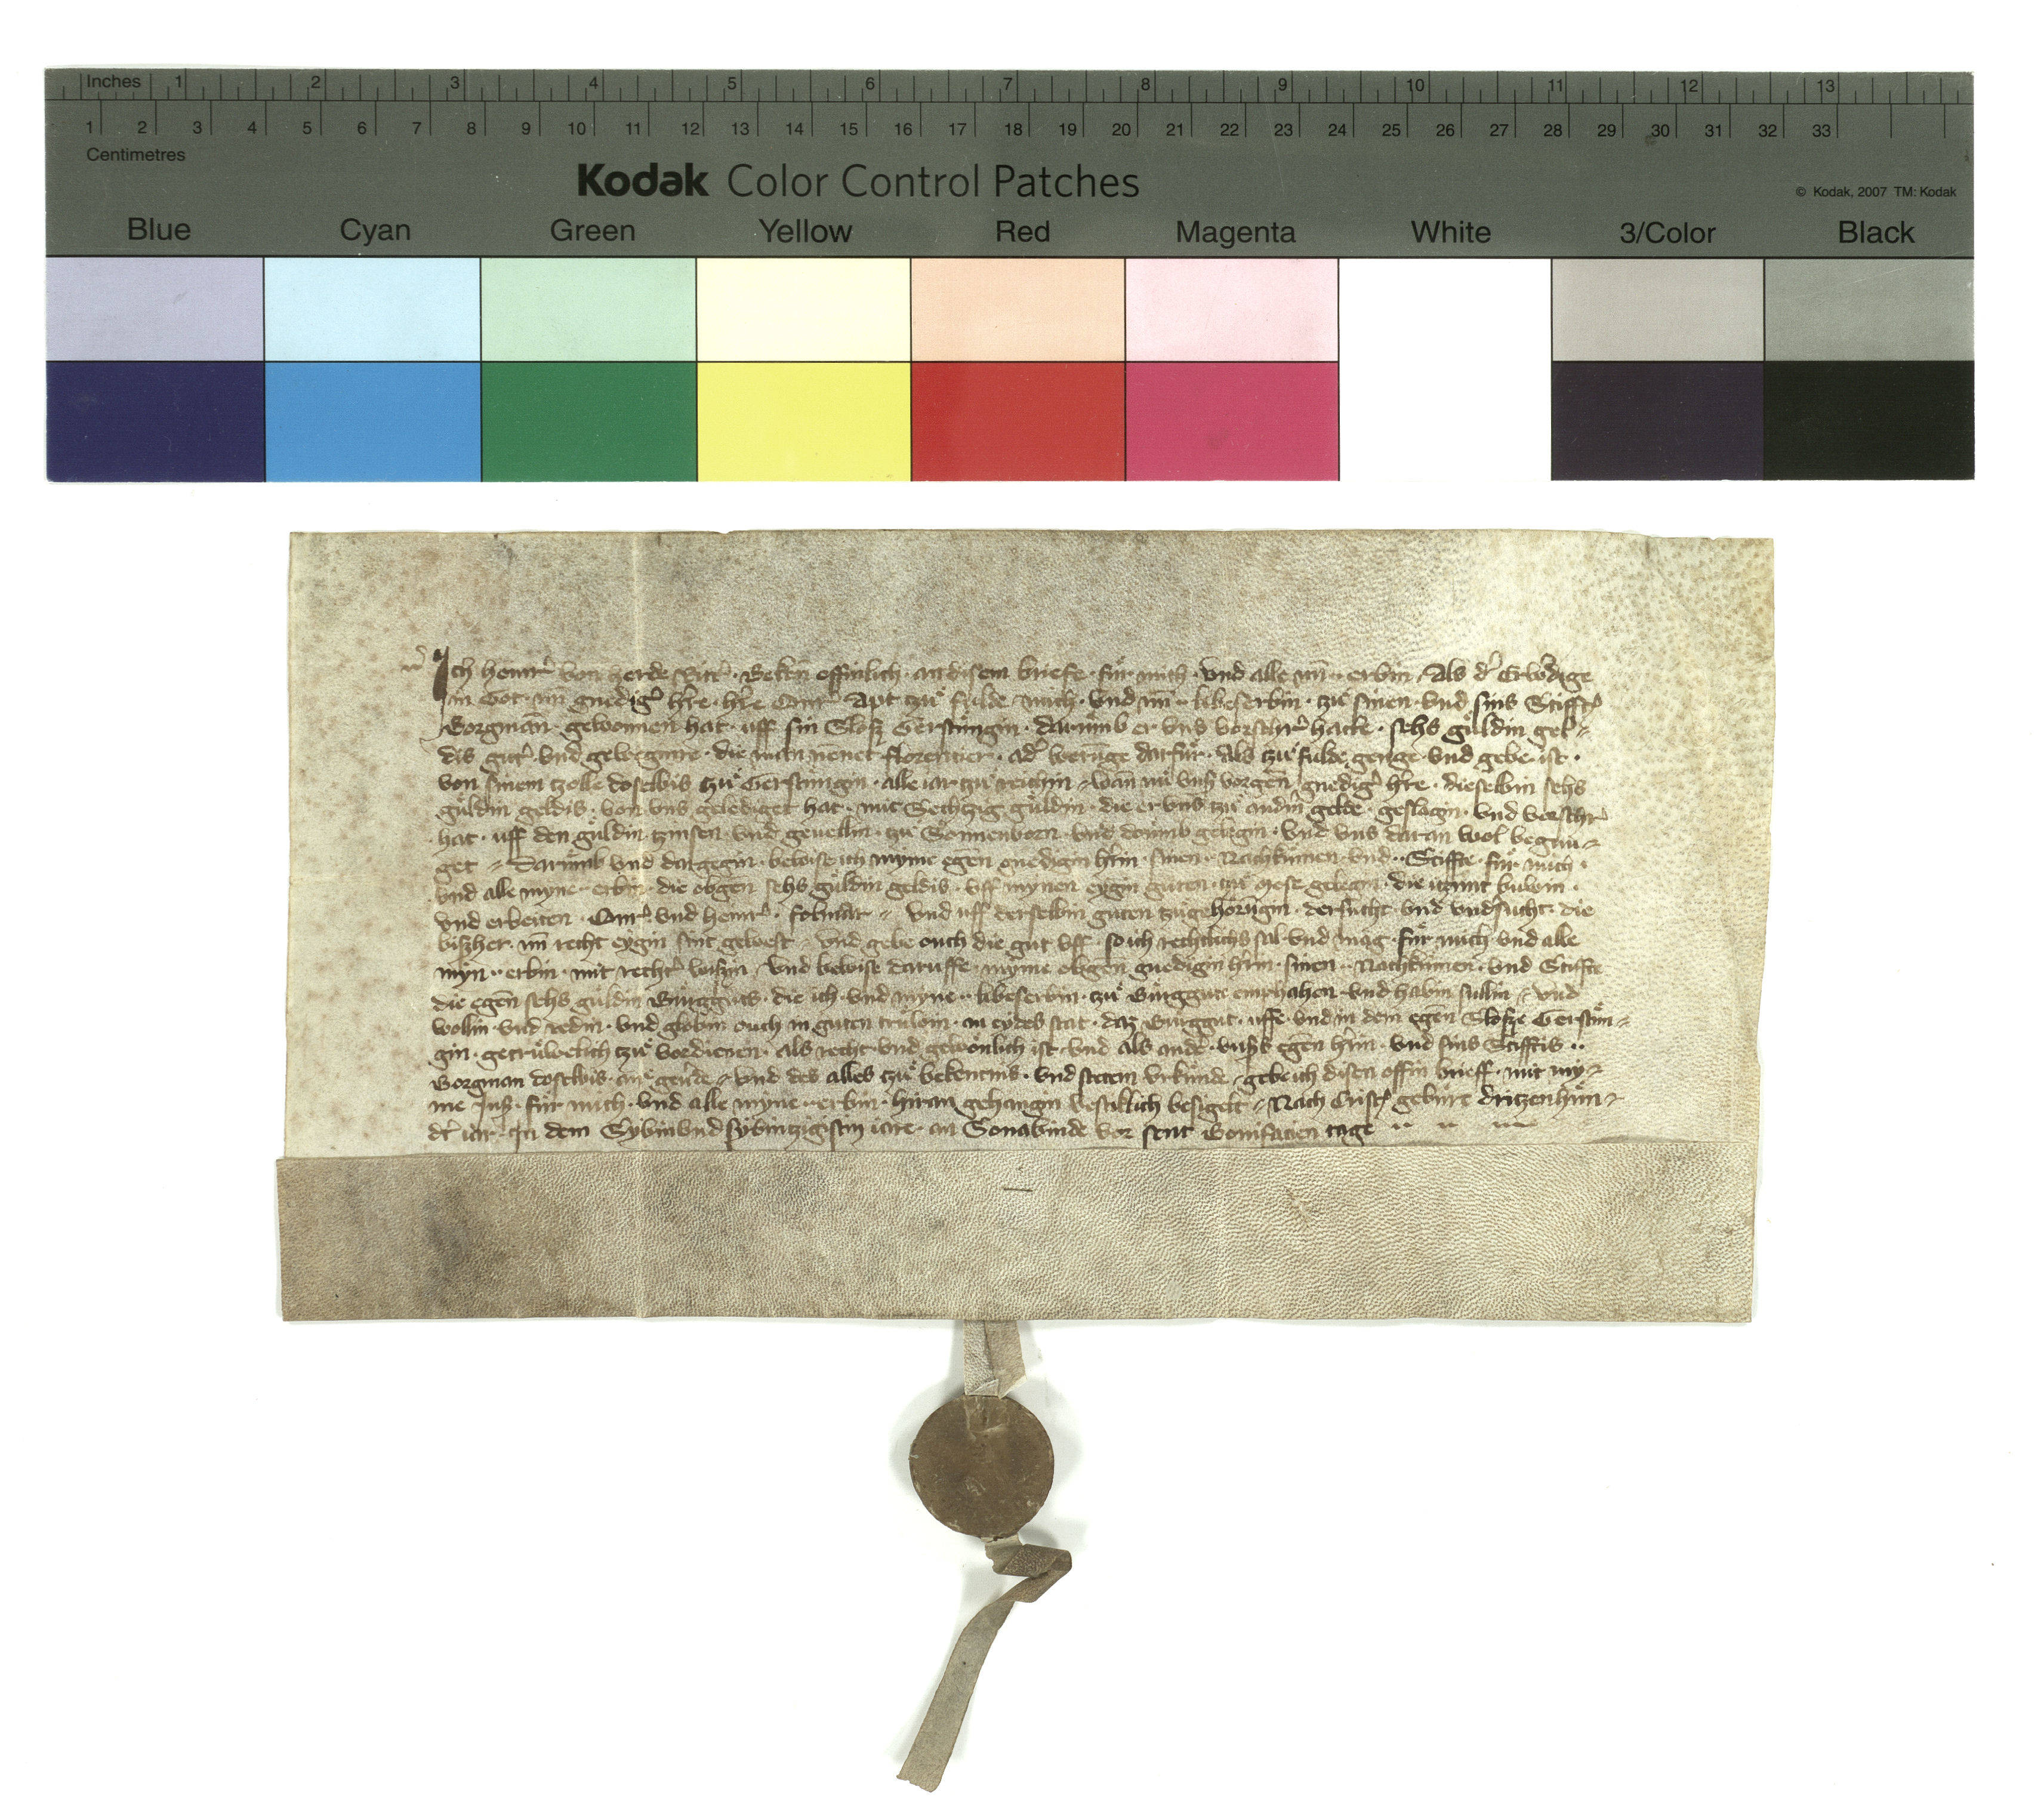 Inches 1 2 3 4 5 6 7 8 9 10 11 12 13
1 2 3 4 5 6 7 8 9 10 11 12 13 14 15 16 17 18 19 20 21 22 23 24 25 26 27 28 29 30 31 32 33
Centimetres
Kodak Color Control Patches
© Kodak, 2007 TM: Kodak
Blue Cyan Green Yellow Red Magenta White 3/Color Black
Ich heinr̄ von herde Ritt̄ · Beken̄ offinlich · an disem briefe · für mich · vnd alle min̄ ·· erbin / Als d̄ Erw̄dige
in Got · min̄ gnediḡ h̄re · h̄re Cunr̄ · Apt tzů fulde mich · vnd min̄ ·· libeserbin · tzů sinen · vnd sins Stifft̄
Borgman̄ · gewonnen hat · uff sin Sloſz Gerstůngin · darůmb er vns vorschr̄ hatte · sehs gůldin gel⸗
dis gut̄ · vnd gebe · die man nenet florentier · ad̄ werunge darfůr · Als tzů fulde genge vnd gebe ist ·
von sinem tzolle doselbis tzů Gerstungin · alle iar tzů reichin / wan̄ nů vnß vorgen̄ gnediḡ h̄re · dieselbin sehs
gůldin geldis · von vns geledigit hat · mit Sechzig gůldin · die er vns tzů and̄n gelde · geslagin · vnd vorschr̄
hat · uff den gůldin tzinsen · vnd geuellin · tzů Sonnenborn · vnd dorůmb gelegin · vnd vns daran wol begnu⸗
get / Darůmb vnd dargegin · bewise ich myme egen̄ gnedigin h̄rin · sinen ·· Nachkůmen · vnd ·· Stiffte · fůr mich ·
vnd alle myne ·· erbin · die obgen̄ sehs gůldin geldis · vff mynen eygin guten · tzů gelegin · die itzunt buwin ·
vnd erbeiten · Cunr̄ vnd heinr̄ · folmar / vnd uff derselbin guten tzůgehorůngin · dersucht · vnd vnd̄sucht · die
biszher · min̄ recht eygin sint gewest / vnd gebe ouch die gut vff · so ich rechtlichs sal vnd mag · fůr mich vnd alle
myn ·· erbin · mit recht̄ wiszin / vnd bewise daruffe · myme obgen̄ gnedigin h̄rin · sinen ·· Nachkůmen · vnd Stiffte
die egen̄ sehs gůldin Bůrgguts · die ich · vnd myne ·· libeserbin · tzů Bůrggute emphahen vnd habin sullin / vnd
wollin · vnd redin · vnd globin ouch in guten trůwin · an eydes stat · daz Bůrggut · uffe · vnd in dem egen̄ Slosze Gerstůn⸗
gin · getrůwelich tzů vordienen · als recht · vnd gewonlich ist · vnd als ander̄ · vnsß egen̄ h̄rin · vnd sins Stifftis ··
Borgman doselbis · ane ger̄de / vnd des alles tzů bekentnis · vnd stetem vrkůnde / gebe ich disen offin brieff · mit my⸗
me Jnß · fůr mich · vnd alle myne ·· erbin · hiran gehangin vestiklich besigelt / Nach Crist̄ gebůrt dritzenhůn⸗
d̄t iar · Jn dem Sybinvndsybintzigistin iare · an Sonabinde vor sent Bonifacien tage